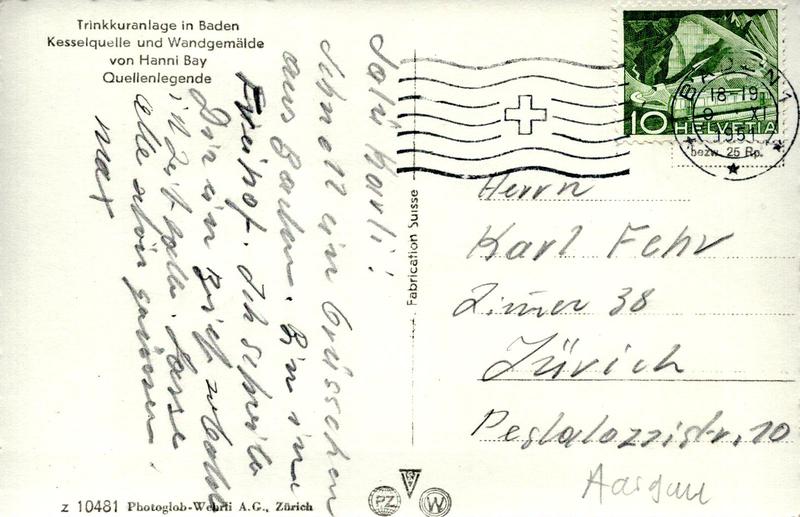 Trinkkuranlage in Baden
Kesselquelle und Wandgemälde
von Hanni Bay
Quellenlegende
Salü Karli!
Schnell ein Grüsschen
aus Baden. Bin im
Freihof. Ich schreibe
Dir ein Brief sobald
ich Zeit habe. Lasse
alle schön grüssen
max
Fabrication Suisse
z 10481 Photoglob-Wehrli A.G., Zürich
PZ
W
BADEN 1
18-19
9 XI
1951
10 HELVETIA
bezw. 25 Rp.
Herrn
Karl Fehr
Zimer 38
Zürich
Pestalozzistr. 10
Aargau